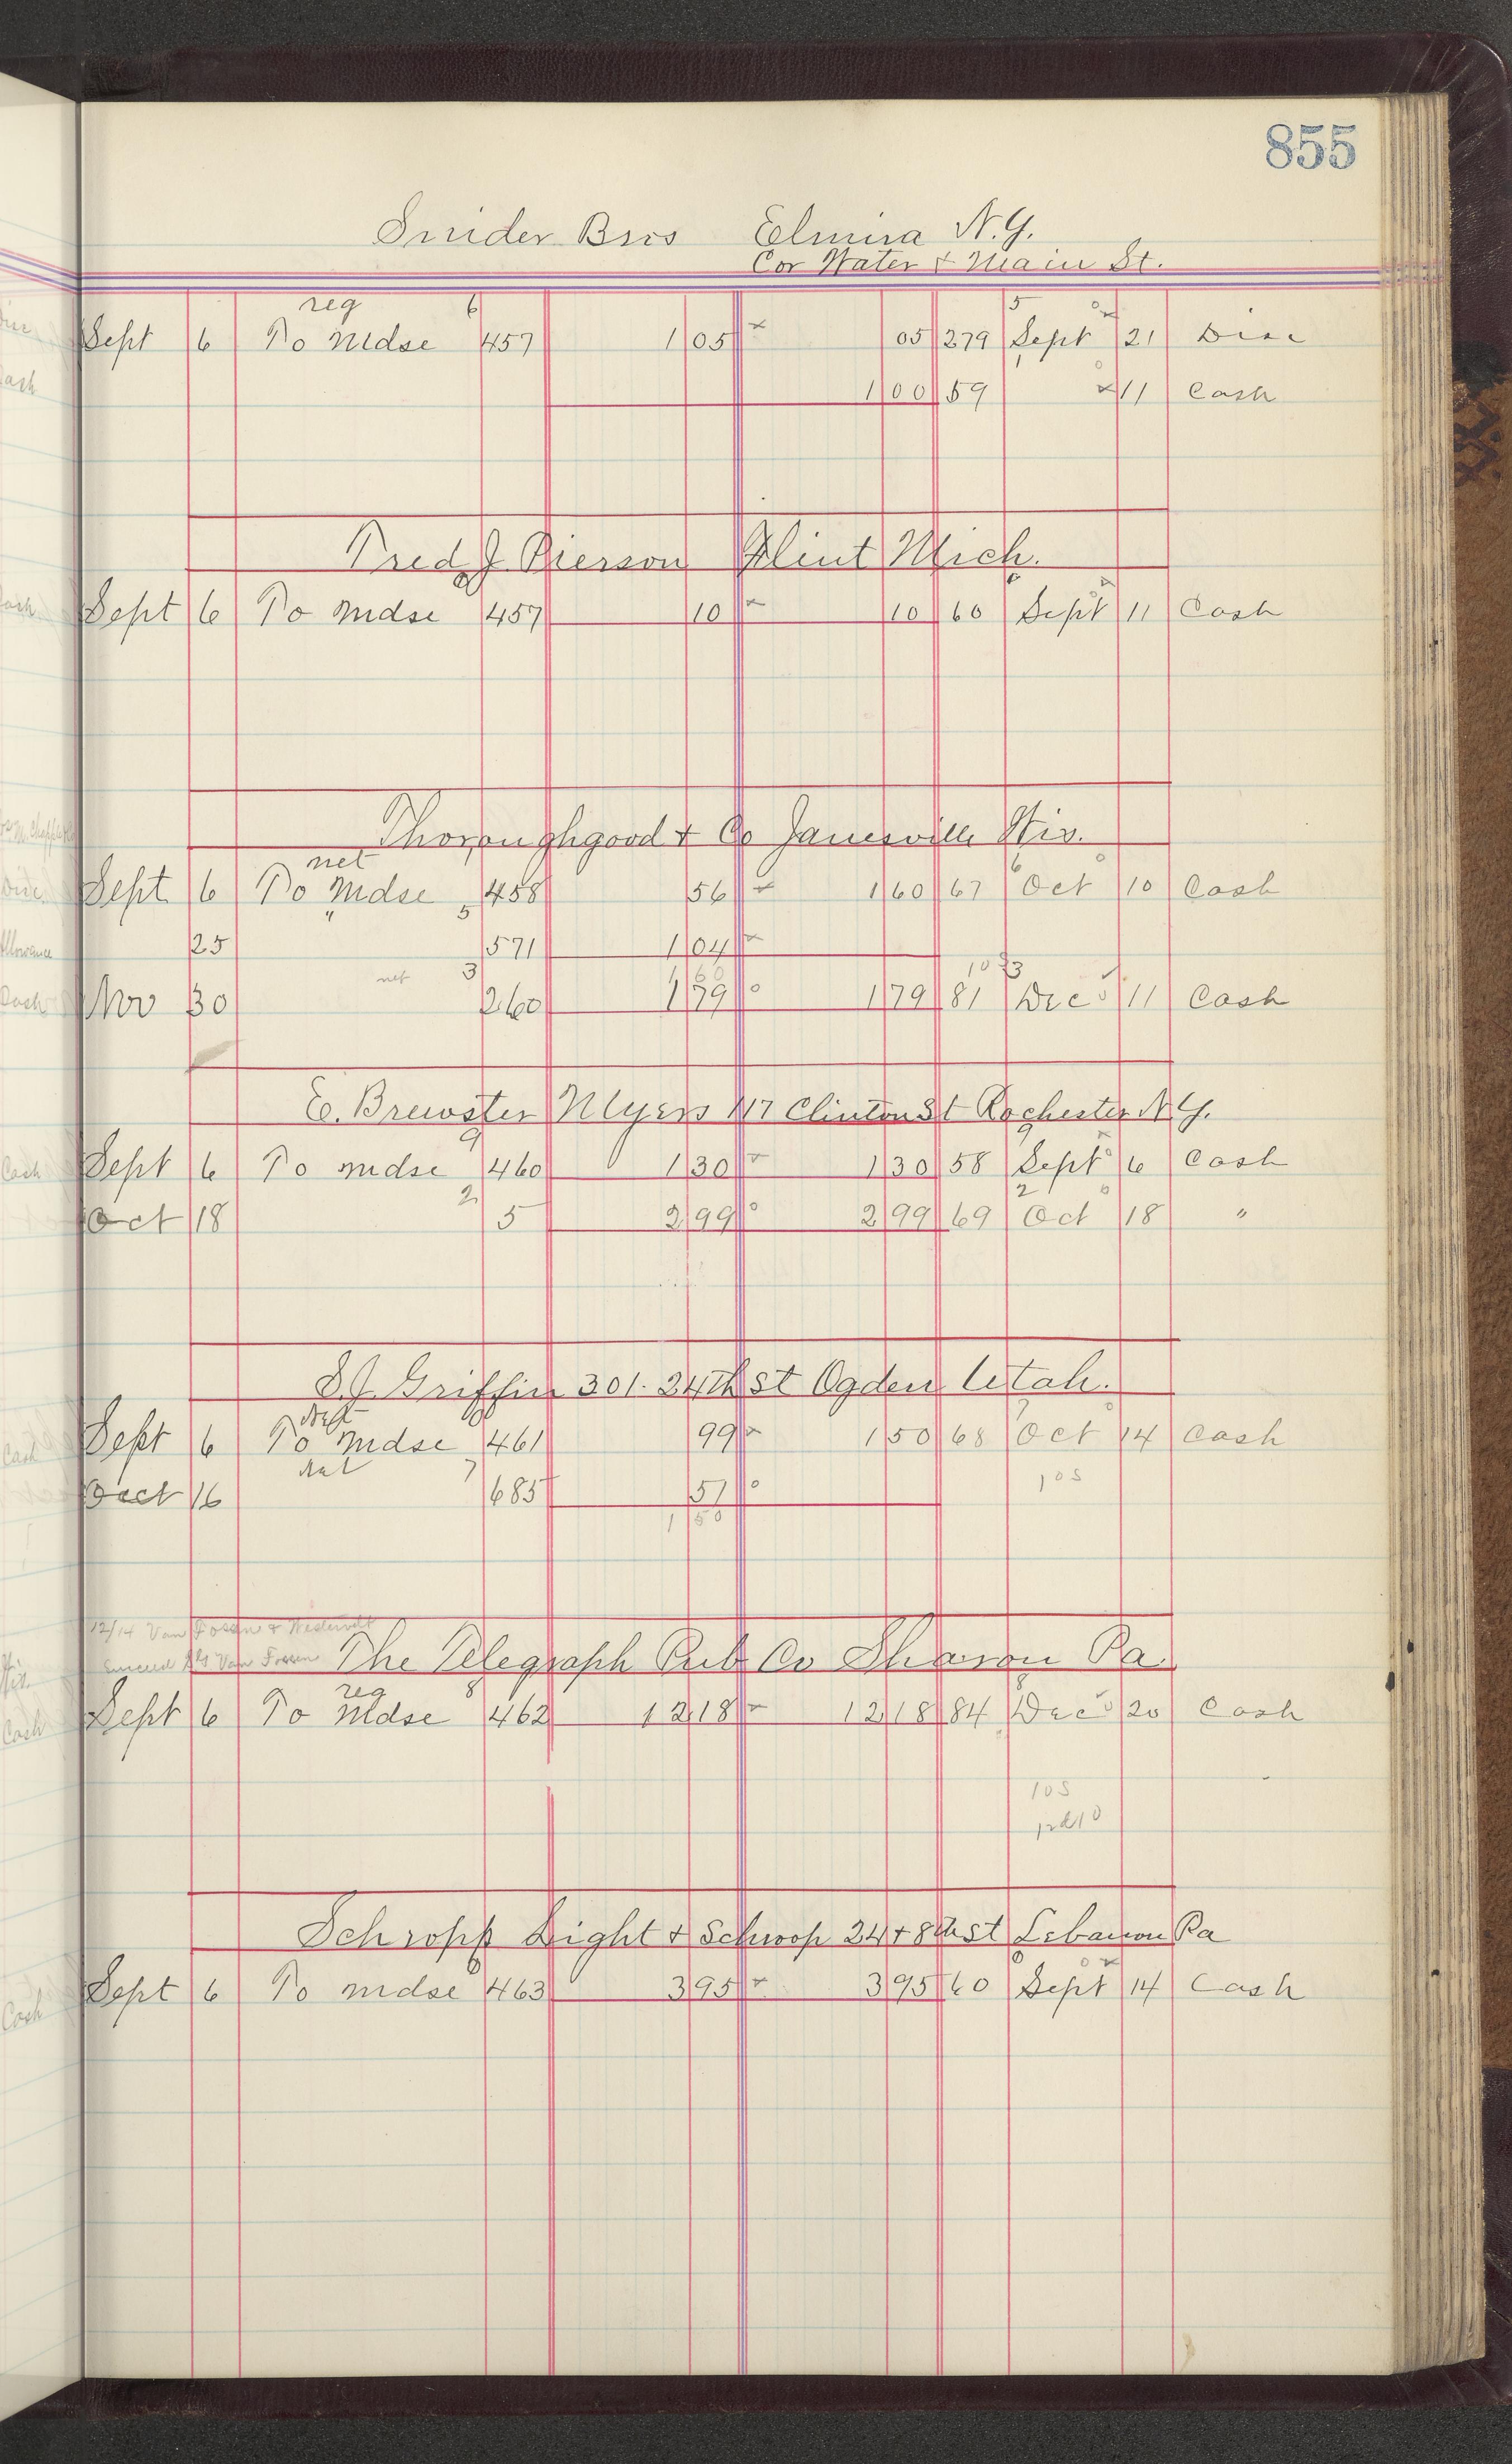 855
Snider Bros Elmira N.Y.
Cor Water & Main St.
reg 6 5
Sept 6 To Mdse 457 1 05 05 279 Sept 21 Disc
1 00 59 11 Cash
Fred J Pierson Flint Mich.
Sept 6 To Mdse 457 10 10 60 Sept 11 Cash
Thoroughgood & Co Janesville Wis.
net 6
Sept 6 To Mdse 458 56 1 60 67 Oct 10 Cash
" 5
25 571 1 04
net 3 1 60 10 73
Nov 30 260 1 79 1 79 81 Dec 11 Cash
E. Brewster Myers 117 Clinton St Rochester N.Y.
9 9
Sept 6 To Mdse 460 1 30 1 30 58 Sept 6 Cash
2 2
Oct 18 5 2 99 2 99 69 Oct 18 "
S.J. Griffin 301. 24th St Ogden Utah.
Sept 6 To Mdse 461 99 1 50 68 Oct 14 Cash
net 7 105
Oct 16 685 51
1 50
12/14 Van Fossen & Westervelt
The Telegraph Pub Co Sharon Pa.
reg 8
Sept 6 To Mdse 462 12 18 12 18 84 Dec 20 Cash
105
Schropp Light & Schroop 24 & 8th St Lebanon Pa
Sept 6 To Mdse 463 3 95 3 95 60 Sept 14 Cash